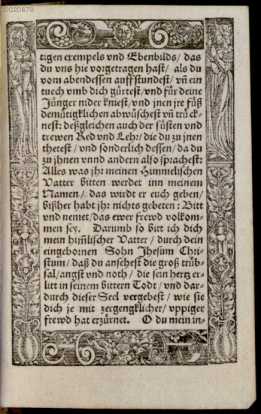 tigen exempels vnd Ebenbilds / das
du vns hie vorgetragen hast / als du
vom abendessen auffstundest / vñ ein
tuech vmb dich gürtest / vnd für deine
Jünger nider kniest / vnd jnen jre füß
demütigklichen abwůschest vñ trück-
nest: deßgleichen auch der süsten vnd
trewen Red vnd Lehr / die du zu jnen
thetest / vnd sonderlich dessen / da du
zu jhnen vnnd andern also sprachest:
Alles was jhr meinen Himmelischen
Vatter bitten werdet inn meinem
Namen / das wirdt er euch geben /
bißher habt jhr nichts gebeten : Bitt
vnd nemet / das ewer frewd volkom-
men sey. Darumb so bitt ich dich
mein himlischer Vatter / durch dein
eingebornen Sohn Jhesum Chri-
stum / daß du ansehest die groß trüb-
sal / angst vnd noth / die sein hertz er-
litt in seinem bittern Todt / vnd dar-
durch dieser Seel vergebest / wie sie
dich je mit zergengklicher / vppiger
frewd hat erzürnet. O du mein in-